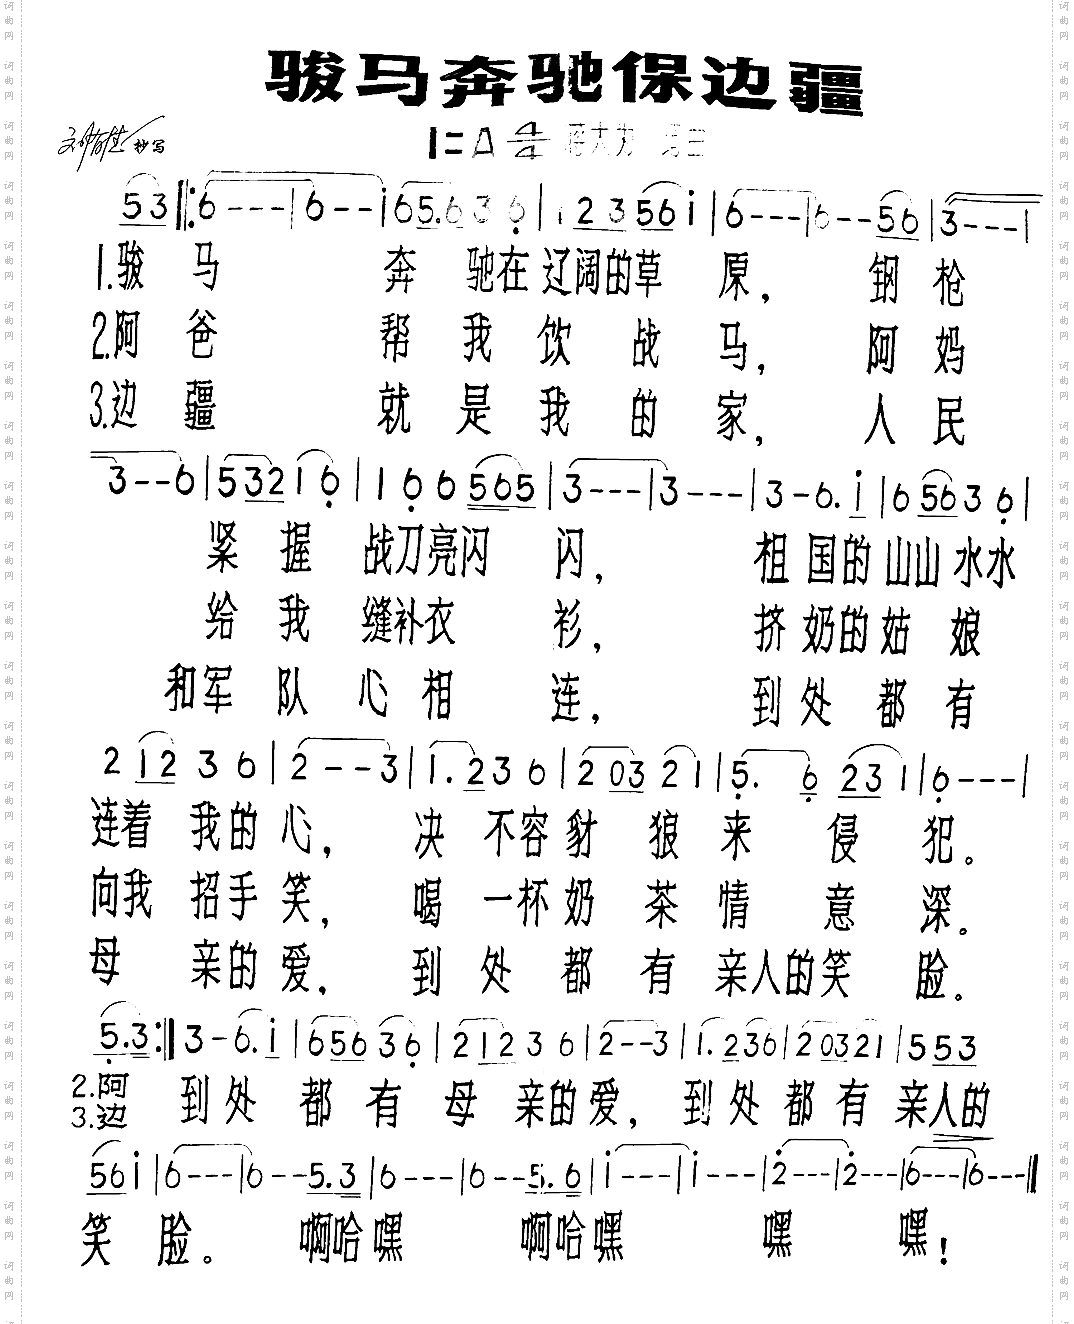 骏马奔驰保边疆
1=A 4/4 蒋大为 曲
抄写
5 3 ‖: 6 - - - | 6 - - i | 6 5. 6 3 6 | 1 2 3 5 6 i | 6 - - - | 6 - - 5 6 | 3 - - - |
1.骏 马 奔 驰在 辽阔的草 原， 钢 枪
2.阿 爸 帮 我 饮 战 马， 阿 妈
3.边 疆 就 是 我 的 家， 人 民
3 - - 6 | 5 3 2 1 6 | 1 6 6 5 6 5 | 3 - - - | 3 - - - | 3 - 6. i | 6 5 6 3 6 |
紧 握 战刀亮闪 闪， 祖 国的 山山 水水
给 我 缝补衣 衫， 挤 奶的 姑 娘
和军 队 心 相 连， 到 处 都 有
2 1 2 3 6 | 2 - - 3 | 1. 2 3 6 | 2 0 3 2 1 | 5. 6 2 3 1 | 6 - - - |
连着 我的 心， 决 不容 豺 狼 来 侵 犯。
向我 招手 笑， 喝 一杯 奶 茶 情 意 深。
母 亲的 爱， 到 处 都 有 亲人的笑 脸。
5. 3 :‖ 3 - 6. i | 6 5 6 3 6 | 2 1 2 3 6 | 2 - - 3 | 1. 2 3 6 | 2 0 3 2 1 | 5 5 3
2.阿 到 处 都 有 母 亲的 爱， 到 处 都 有 亲人的
3.边
5 6 i | 6 - - - | 6 - - 5. 3 | 6 - - - | 6 - - 5. 6 | i - - - | i - - - | 2 - - - | 2 - - - | 6 - - - | 6 - - - ‖
笑 脸。 啊哈嘿 啊哈嘿 嘿 嘿！
词曲网